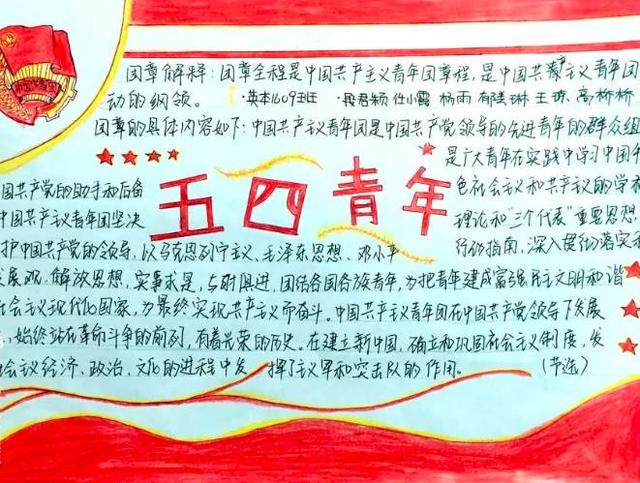 团章解释：团章全程是中国共产主义青年团章程，是中国共产主义青年团
动的纲领。 ·英本1609班 ·段君颖 任小霞 杨雨 王琼 高桥桥
团章的具体内容如下：中国共产主义青年团是中国共产党领导的先进青年的群众组
是广大青年在实践中学习中国
色社会主义和共产主义的学
理论和“三个代表”重要思想
行动指南，深入贯彻落实
五四青年
国共产党的助手和后备
中国共产主义青年团坚决
护中国共产党的领导，以马克思列宁主义、毛泽东思想、邓小平
发展观，解放思想，实事求是，与时俱进，团结各国各族青年，为把青年建成富强民主文明和谐
会主义现代化国家，为最终实现共产主义而奋斗。中国共产主义青年团在中国共产党领导下发展
，始终站在革命斗争的前列，有着光荣的历史。在建立新中国，确立和巩固社会主义制度，发
会主义经济、政治、文化的进程中发 挥了主义军和突击队的作用。 （节选）